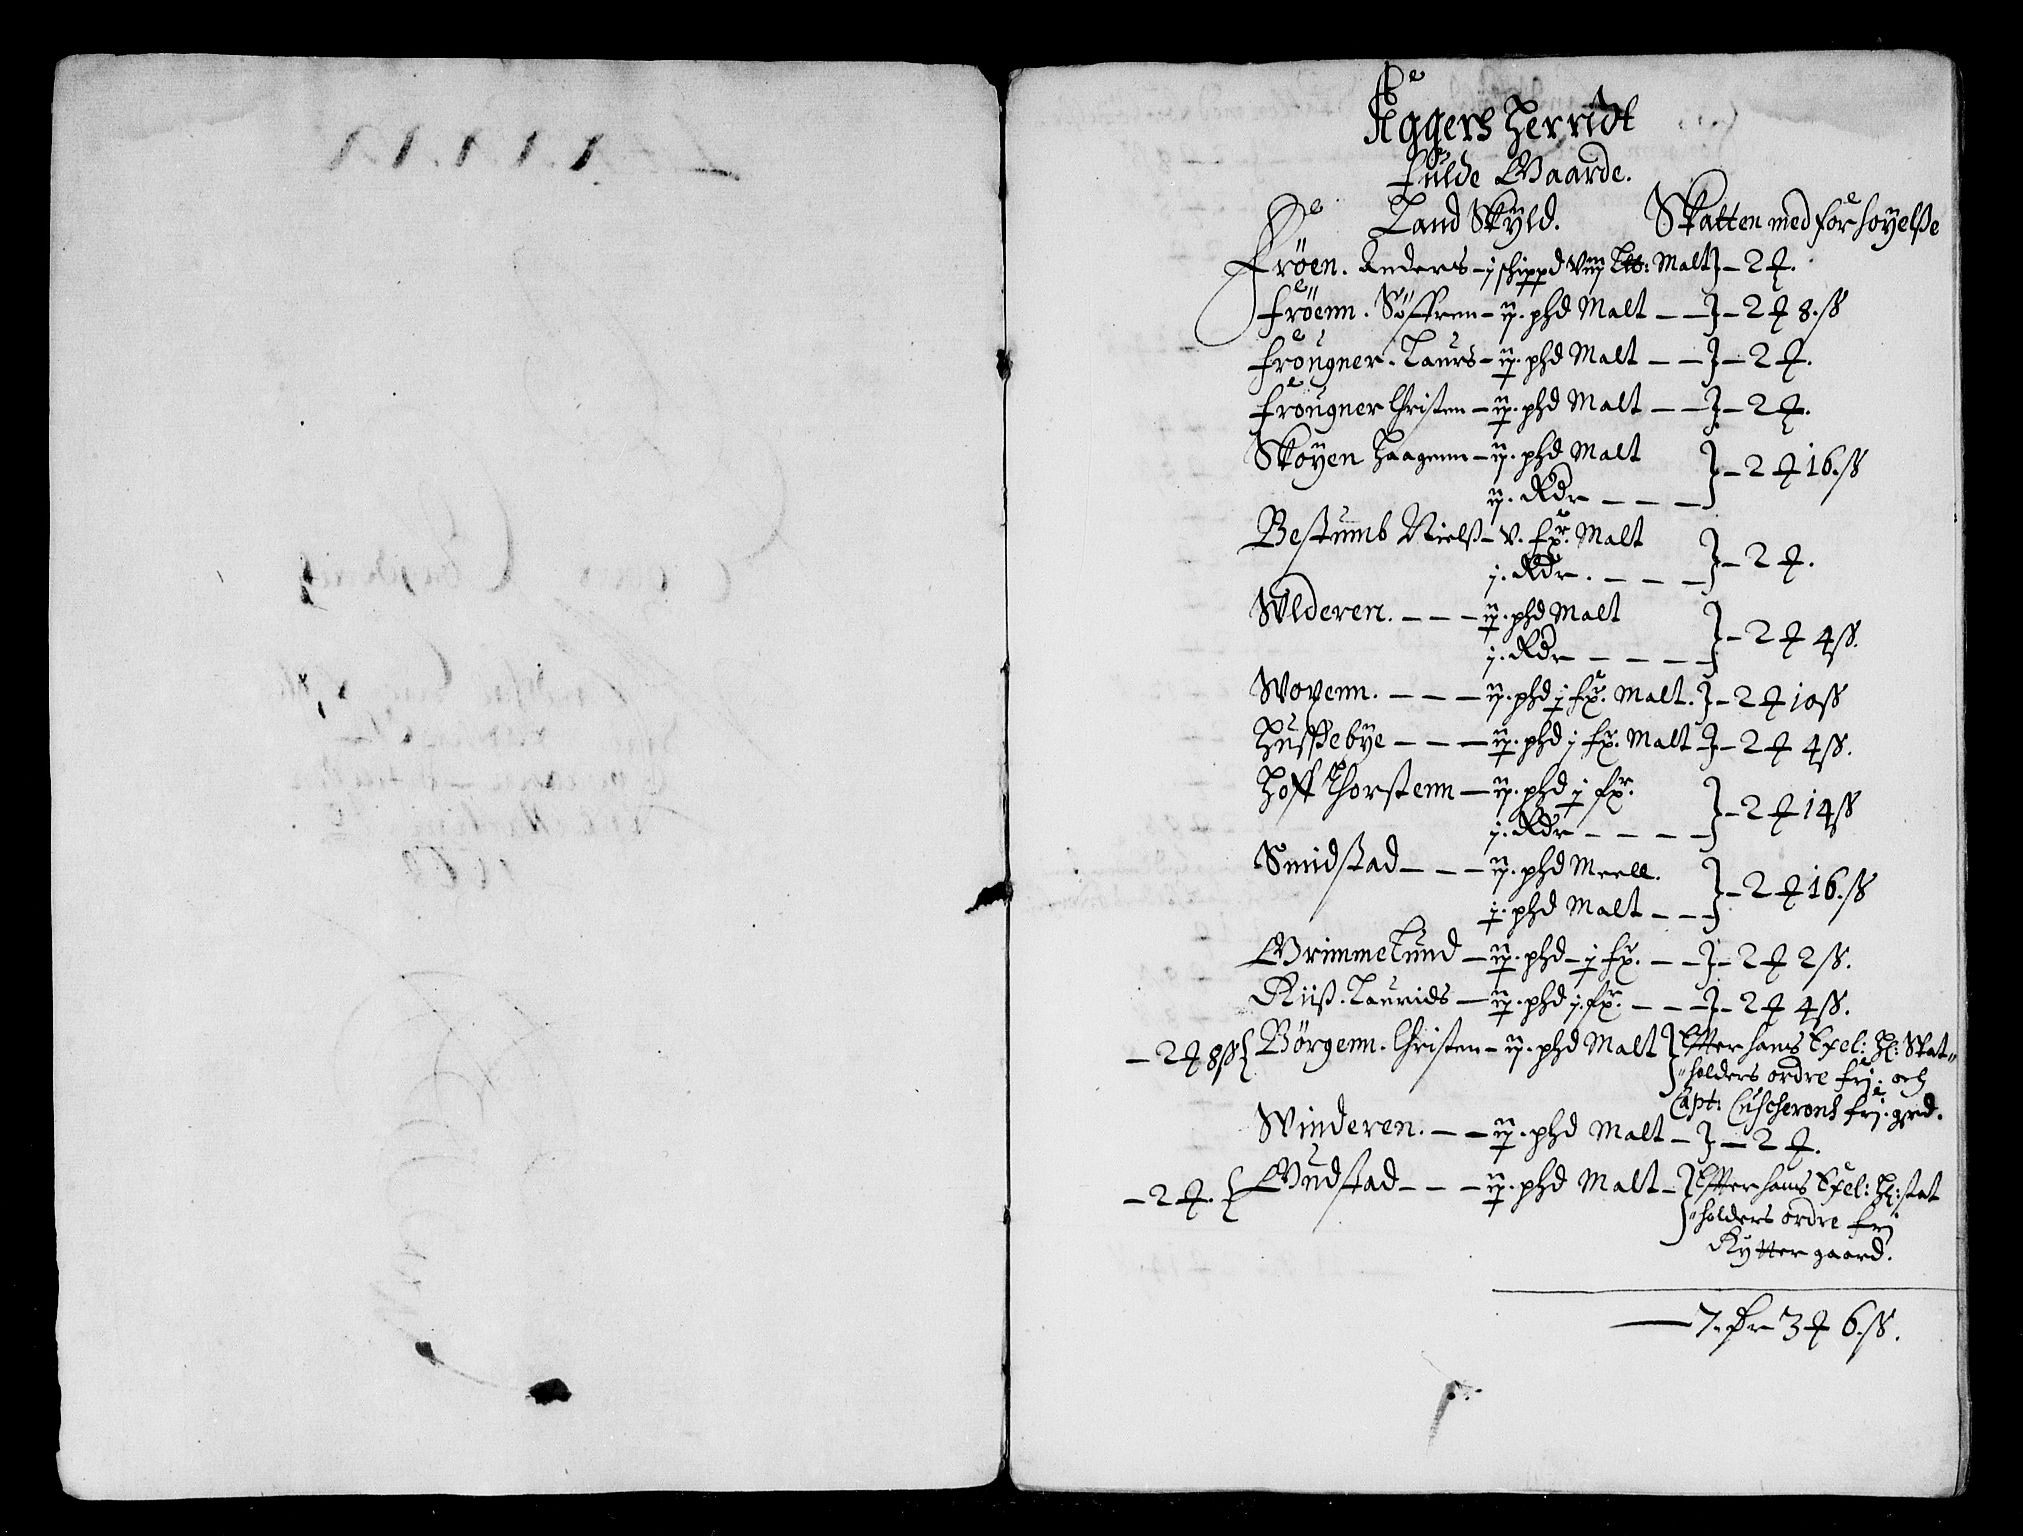 Aggers Herridt
Fulde Gaarde.
Land Skyld. Skatten med forhøyelße
Frøen. Anders - j schippd Viij Lt: Malt - 2 ⸸.
Frøenn. Søffren - ij. phd Malt - - 2 ⸸ 8. ß
Frougner. Laurs - ij. phd Malt - - 2 ⸸.
Frougner Christen - ij. phd Malt - - 2 ⸸.
Skøyen Haagenn - ij. phd Malt
ij. Rdr - - - 2 ⸸ 16. ß
Bestumb Nielß - v. fr. Malt
j. Rdr. - - - 2 ⸸.
Wlderen. - - - ij. phd Malt
j. Rdr - - - - 2 ⸸ 4 ß.
Wovenn. - - - ij. phd j fr. Malt. - 2 ⸸ 10 ß
Hussebye - - - ij. phd j fr. Malt - 2 ⸸ 4 ß.
Hoff Thorstenn - ij. phd j fr.
j. Rdr - - - - 2 ⸸ 14 ß
Smidstad - - - ij. phd Meell.
j. phd Malt - - - 2 ⸸ 16. ß
Grimmelund - ij. phd - j fr. - - - 2 ⸸ 2 ß.
Riiß. Laurids - ij. phd j. fr. - - - 2 ⸸ 4 ß.
- 2 ⸸ 8 ß { Børgenn. Christen - ij. phd Malt } Effter hans Exel: H: Stat"
"holders ordre fri. och
Capt: Cuscherons fri. grd.
Winderen. - - ij. phd Malt - - 2 ⸸.
- 2 ⸸. { Gudstad - - - ij. phd Malt - } Effter hans Exel: H: stat
"holders ordre fri
Rytter gaard.
7. Dr 3 ⸸ 6. ß.